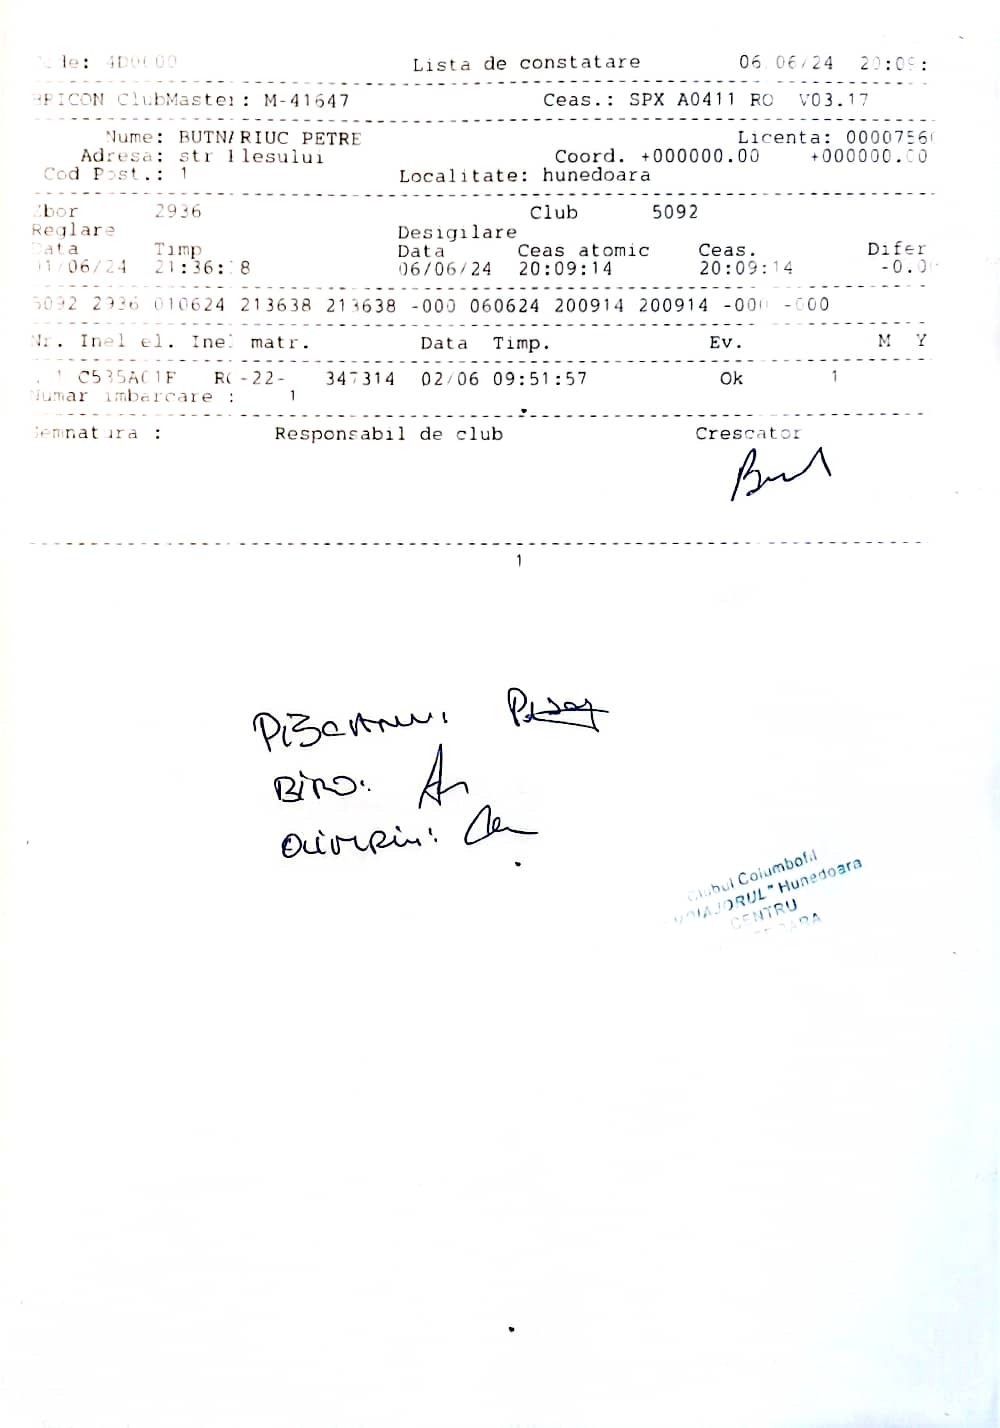 Lista de constatare 06/06/24 20:09:
BRICON ClubMaster: M-41647 Ceas.: SPX A0411 RO V03.17
Nume: BUTNARIUC PETRE Licenta: 0000756
Adresa: str Ilesului Coord. +000000.00 +000000.00
Cod Post.: 1 Localitate: hunedoara
Zbor 2936 Club 5092
Reglare Desigilare
Data Timp Data Ceas atomic Ceas. Difer
01/06/24 21:36:38 06/06/24 20:09:14 20:09:14 -0.0
5092 2936 010624 213638 213638 -000 060624 200914 200914 -000 -000
Nr. Inel el. Inel matr. Data Timp. Ev. M Y
1 C535AC1F RO-22- 347314 02/06 09:51:57 Ok 1
Numar imbarcare : 1
Semnatura : Responsabil de club Crescator
1
BIRO:
OLIMPIU:
Clubul Columbofil
"VOIAJORUL" Hunedoara
CENTRU